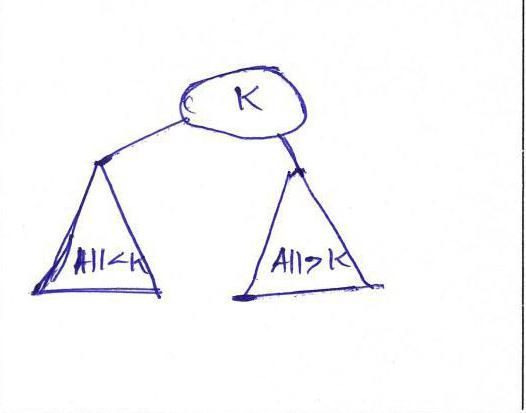 K
All<K
All>K